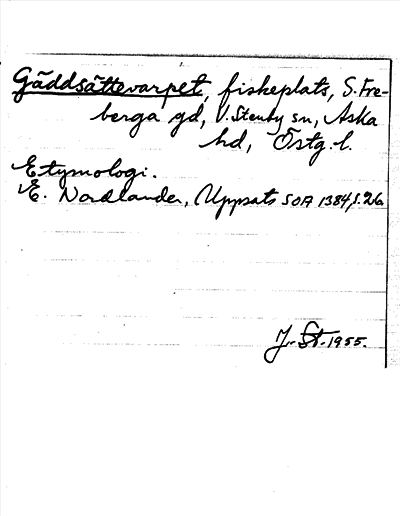 Gäddsättevarpet, fiskeplats, S. Fre-
berga gd, V. Stenby sn, Aska
hd, Östg. l.
Etymologi.
E. Nordlander, Uppsats SOA 1384, s. 26.
J. St. 1955.